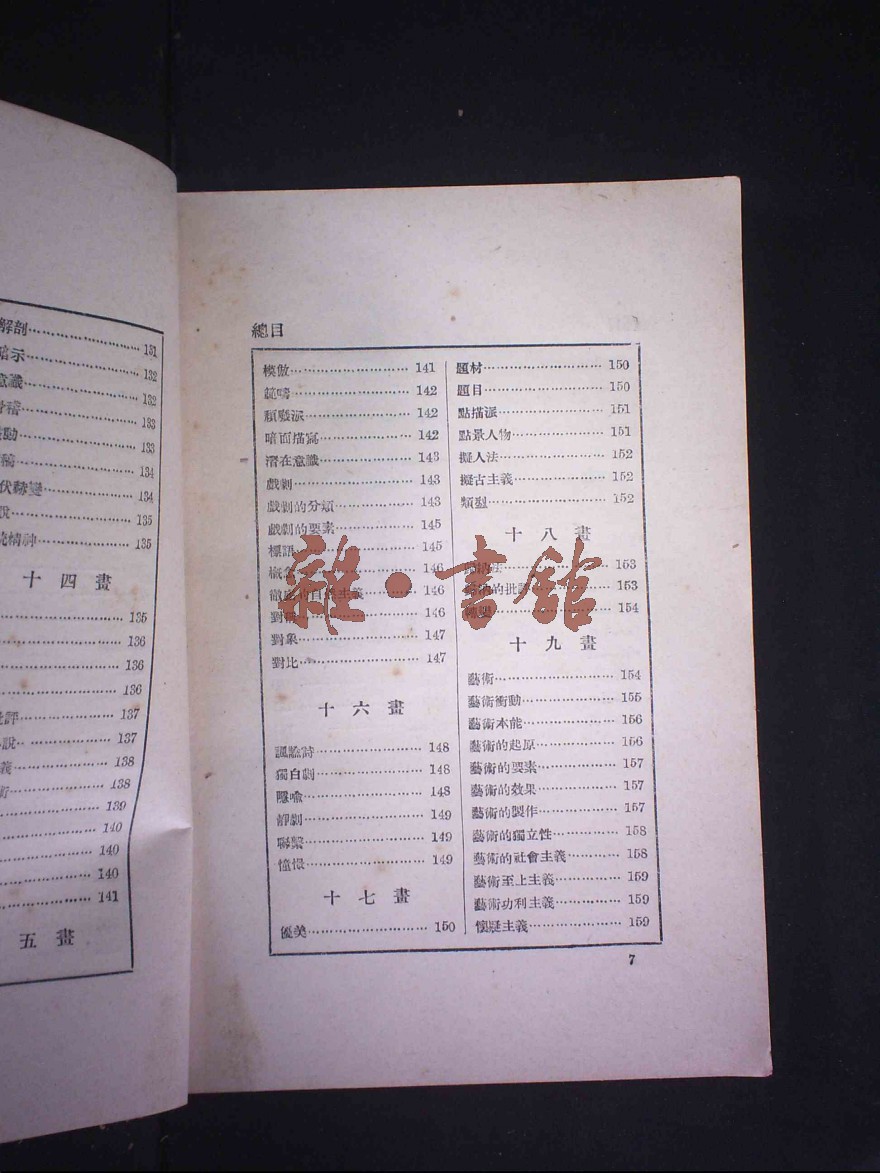 解剖 131
暗示 132
意識 132
滑稽 133
動 133
稿 134
伏線變 134
說 135
情神 135
十四畫
135
136
136
136
批評 137
說 137
義 138
術 138
139
140
140
140
141
五畫
總目
模倣 141
範疇 142
頹廢派 142
暗面描寫 142
潛在意識 143
戲劇 143
戲劇的分類 143
戲劇的要素 145
標語 145
概念 146
徹底的自然主義 146
對偶 146
對象 147
對比 147
十六畫
諷諭詩 148
獨白劇 148
隱喩 148
靜劇 149
聯繫 149
憧憬 149
十七畫
優美 150
題材 150
題目 150
點描派 151
點景人物 151
擬人法 152
擬古主義 152
類型 152
十八畫
153
的批評 153
154
十九畫
藝術 154
藝術衝動 155
藝術本能 156
藝術的起原 156
藝術的要素 157
藝術的效果 157
藝術的製作 157
藝術的獨立性 158
藝術的社會主義 158
藝術至上主義 159
藝術功利主義 159
懷疑主義 159
7
雜·書館